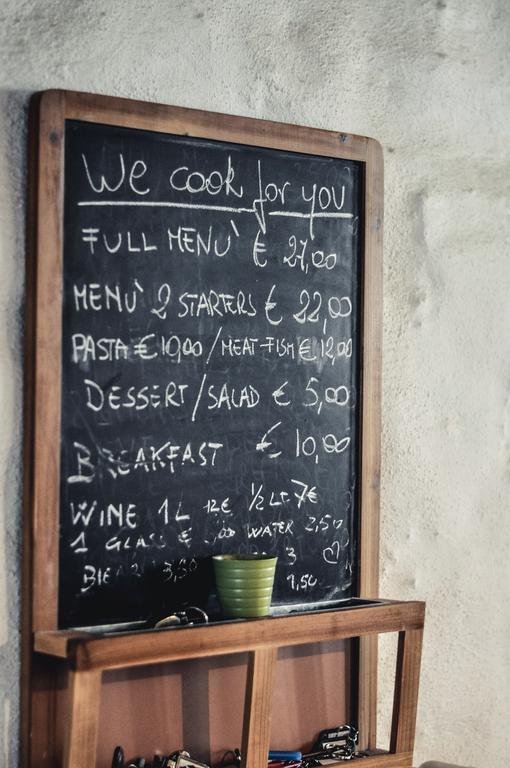 We cook for you
FULL MENU' € 27,00
MENU' 2 STARTERS € 22,00
PASTA € 10,00 / MEAT-FISH € 12,00
DESSERT / SALAD € 5,00
BREAKFAST € 10,00
WINE 1L 12€ 1/2 LT 7€
1 GLASS € ,00 WATER 2,50
3,50 3
1,50